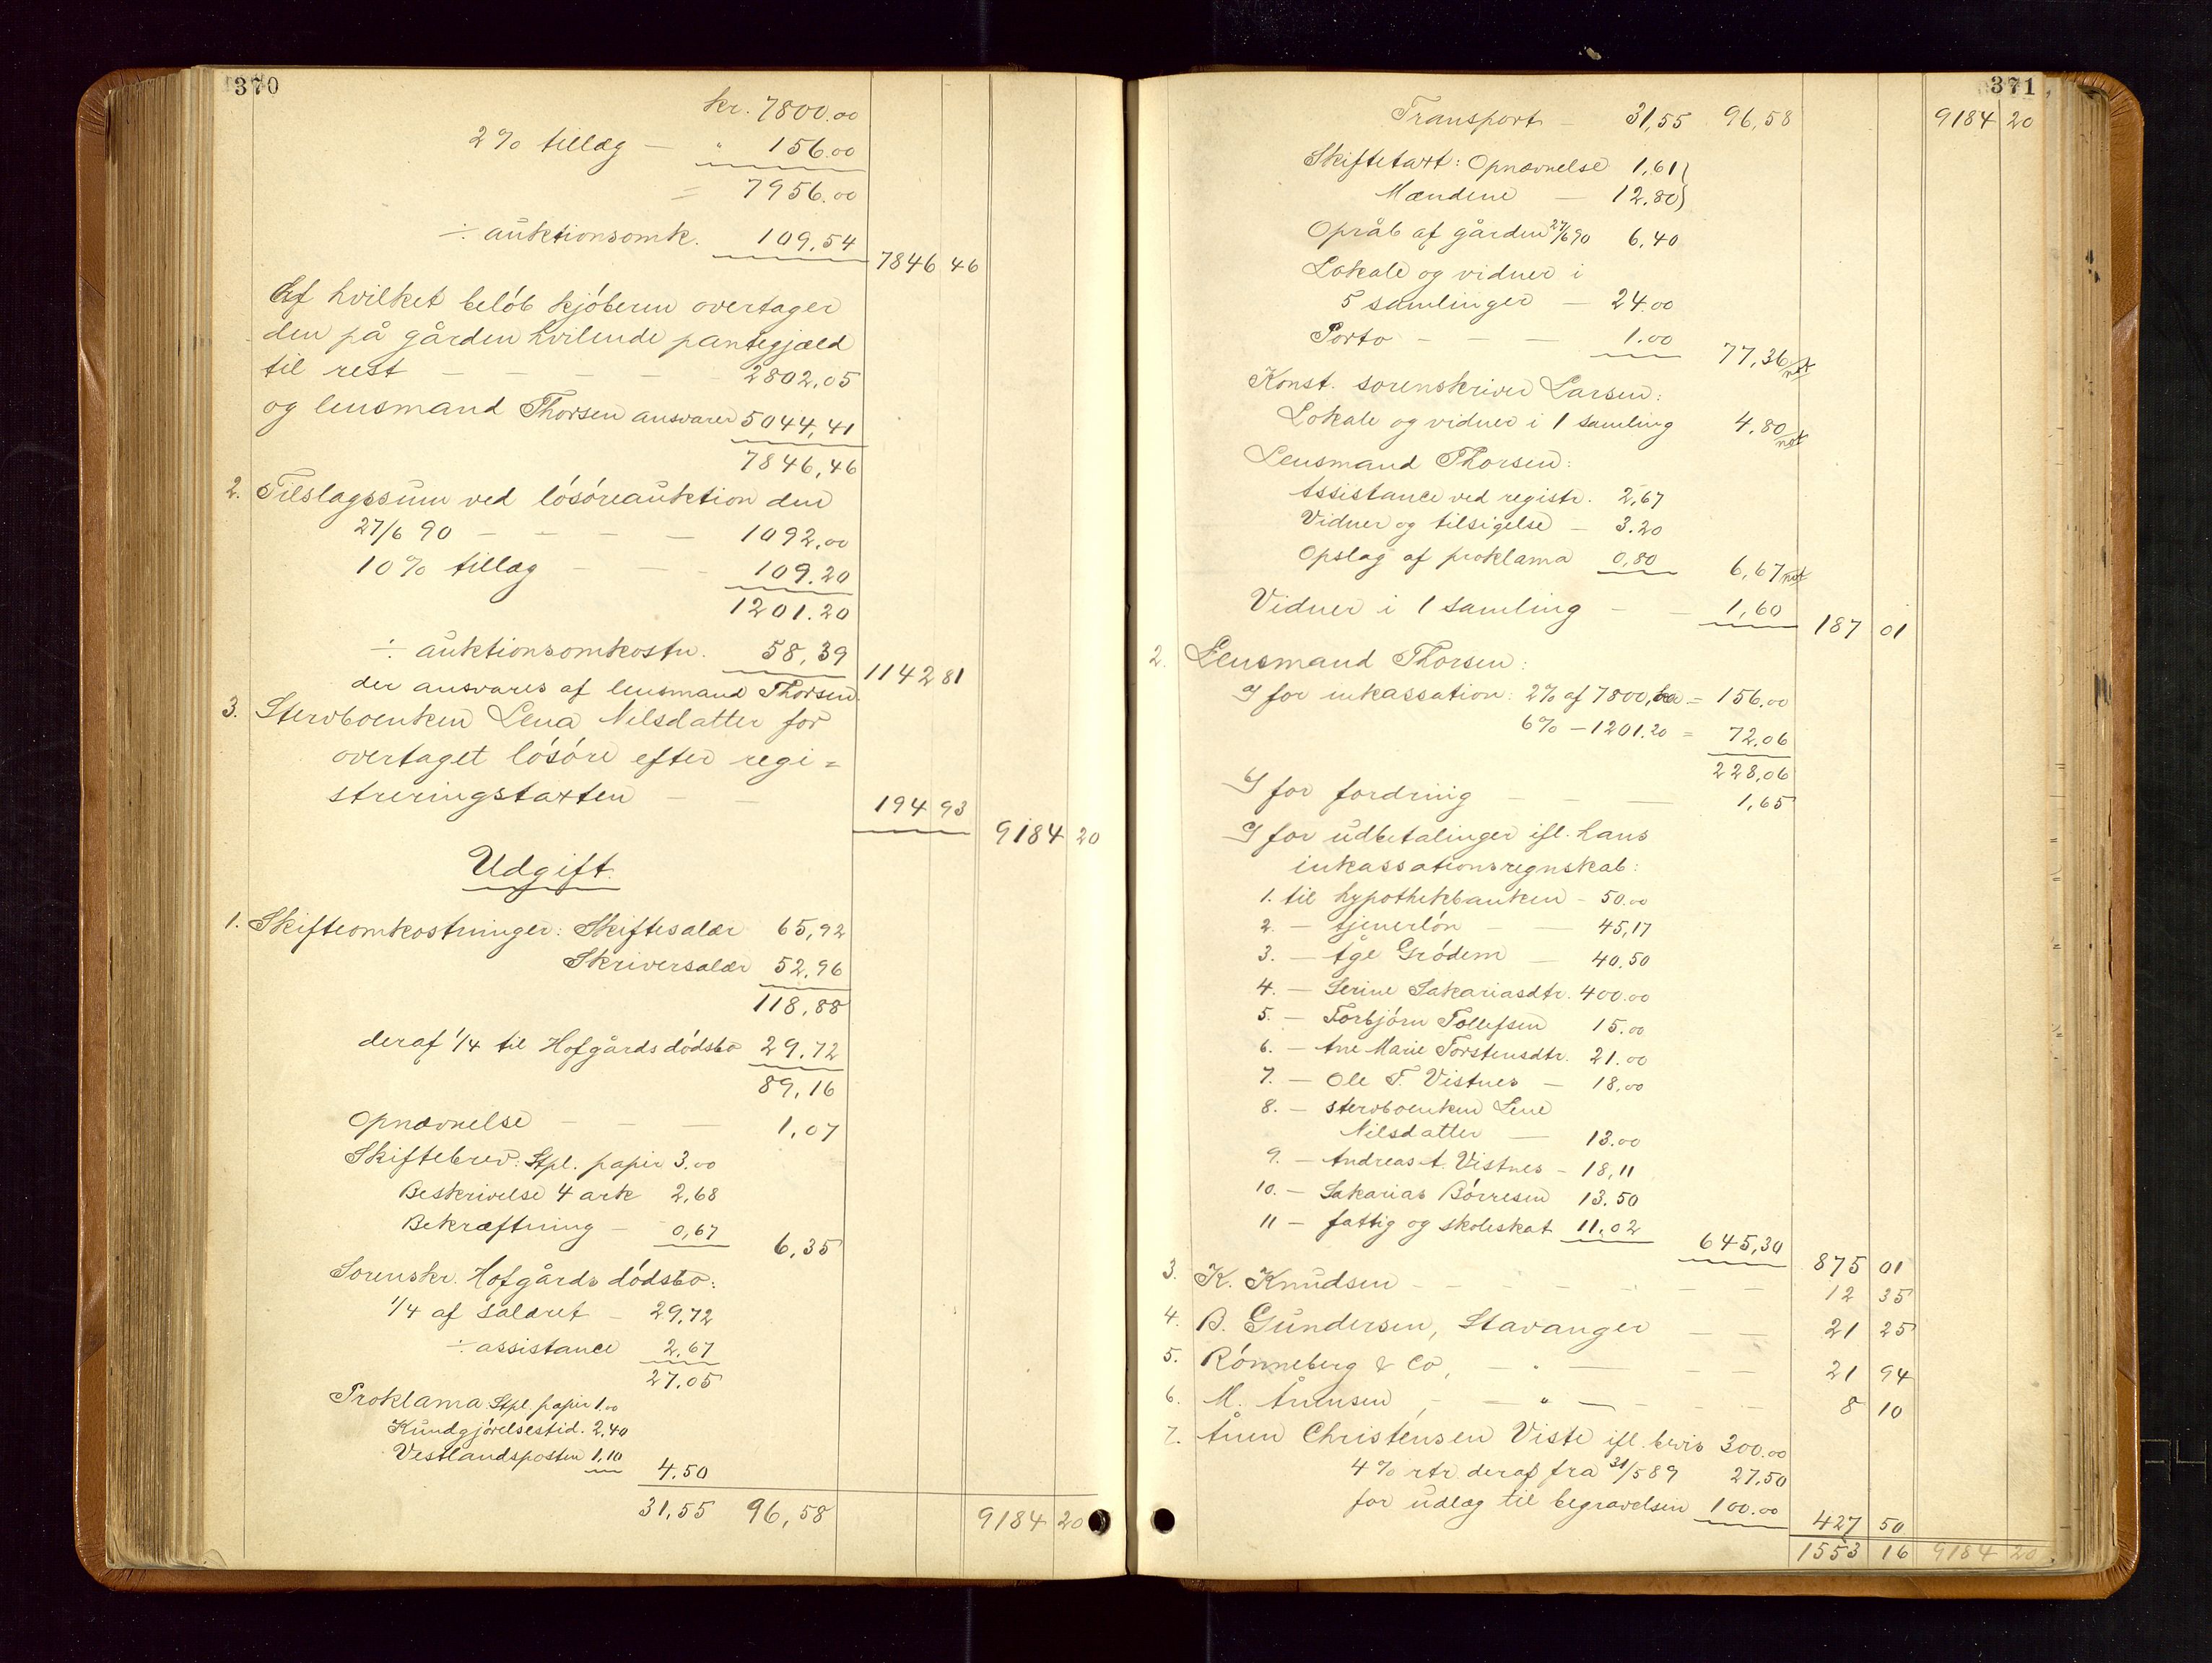 370
kr. 7800.00
2% tillæg — " 156.00
= 7956.00
÷ auktionsomk. 109,54 7846 46
Af hvilket beløb kjøberen overtager
den på gården hvilende pantegjæld
til rest — — — — — 2802,05
og lensmand Thorsen ansvarer 5044,41
7846,46
2. Tilslagssum ved løsøreauktion den
27/6 90 — — — — 1092,00
10% tillæg — — — 109.20
1201.20
÷ auktionsomkostn. 58,39 1142 81
der ansvares af lensmand Thorsen.
3. Stervboenken Lena Nilsdatter for
overtaget løsøre efter regi=
streringstaxten — — 194 93 9184 20
Udgift.
1. Skifteomkostninger: Skiftesalær 65,92
Skriversalær 52,96
118,88
deraf 1/4 til Hofgårds dødsbo 29,72
89,16
Opnævnelse — — — 1,07
Skiftebrev: Stpl. papir 3.00
Beskrivelse 4 ark 2,68
Bekræftning — 0,67 6,35
Sorenskr. Hofgårds dødsbo:
1/4 af salæret — 29,72
÷ assistance 2,67
27,05
Proklama Stpl. papir 1.00
Kundgjørelsestid. 2,40
Vestlandsposten 1,10 4,50
31,55 96,58 9184 20
371
Transport — 31,55 96,58 9184 20
Skiftetaxt: Opnævnelse 1,61)
Mændene — 12,80)
Opråb af gården 27/6 90 6,40
Lokale og vidner i
5 samlinger — 24.00
Porto — — — 1.00 77,36
Konst. sorenskriver Larsen:
Lokale og vidner i 1 samling 4.80
Lensmand Thorsen:
Assistance ved registr. 2,67
Vidner og tilsigelse — 3.20
Opslag af proklama 0,80 6,67
Vidner i 1 samling — — 1,60 187 01
2. Lensmand Thorsen:
I for inkassation: 2% af 7800, = 156.00
6% — 1201.20 = 72,06
228,06
I for fordring — — — 1,65
I for udbetalinger ifl. hans
inkassationsregnskab:
1. til hypothekbanken — 50.00
2. — tjenerløn — — 45,17
3. — Åge Grødem — 40,50
4. — Serine Sakariasdtr. 400.00
5. — Torbjørn Tollefsen 15.00
6. — Ane Marie Torstensdtr. 21.00
7. — Ole T. Vistnes — 18,00
8. — stervboenken Lene
Nilsdatter — 13.00
9. — Andreas A. Vistnes — 18,11
10. — Sakarias Børresen 13.50
11 — fattig og skoleskat 11,02 645,30 875 01
3. K. Knudsen — — — — — — 12 35
4. B. Gundersen, Stavanger — — 21 25
5. Rønneberg & Co, — " — — — 21 94
6. M. Ånensen, — — " — — — 8 10
7. Ånen Christensen Viste ifl. bevis 300.00
4% rtr. deraf fra 31/5 89 27,50
for udlæg til begravelsen 100.00 427 50
1553 16 9184 20